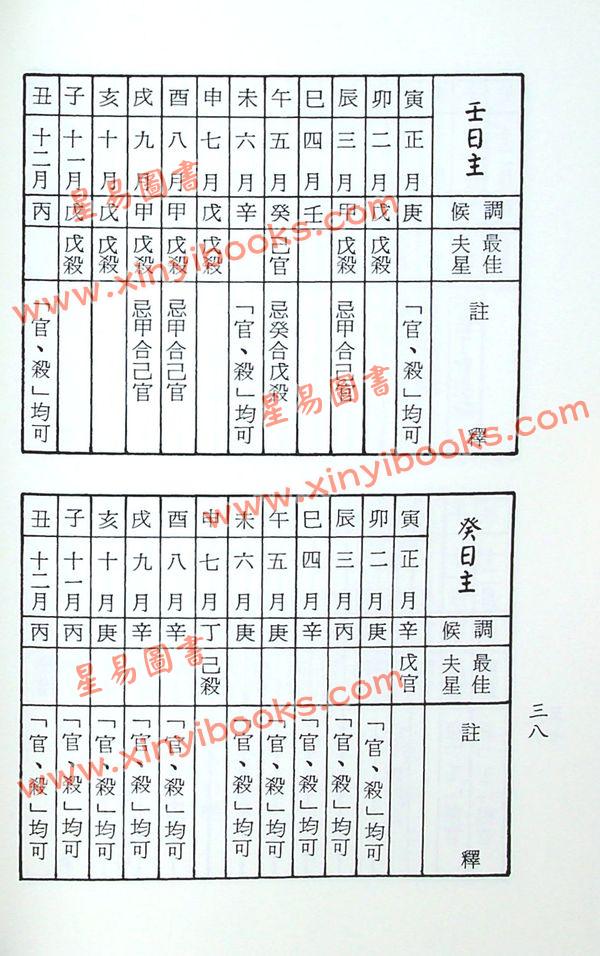 壬日主 調候 最佳夫星 註釋
寅 正月 庚 「官、殺」均可
卯 二月 戊 戊殺
辰 三月 甲 戊殺 忌甲合己官
巳 四月 壬
午 五月 癸 己官 忌癸合戊殺
未 六月 辛 「官、殺」均可
申 七月 戊 戊殺
酉 八月 甲 戊殺 忌甲合己官
戌 九月 甲 戊殺 忌甲合己官
亥 十月 戊 戊殺
子 十一月 戊 戊殺
丑 十二月 丙 「官、殺」均可
癸日主 調候 最佳夫星 註釋
寅 正月 辛 戊官
卯 二月 庚 「官、殺」均可
辰 三月 丙 「官、殺」均可
巳 四月 辛 「官、殺」均可
午 五月 庚 「官、殺」均可
未 六月 庚 「官、殺」均可
申 七月 丁 己殺
酉 八月 辛 「官、殺」均可
戌 九月 辛 「官、殺」均可
亥 十月 庚 「官、殺」均可
子 十一月 丙 「官、殺」均可
丑 十二月 丙 「官、殺」均可
三八
星易圖書
www.xinyibooks.com
星易圖書
www.xinyibooks.com
星易圖書
www.xinyibooks.com